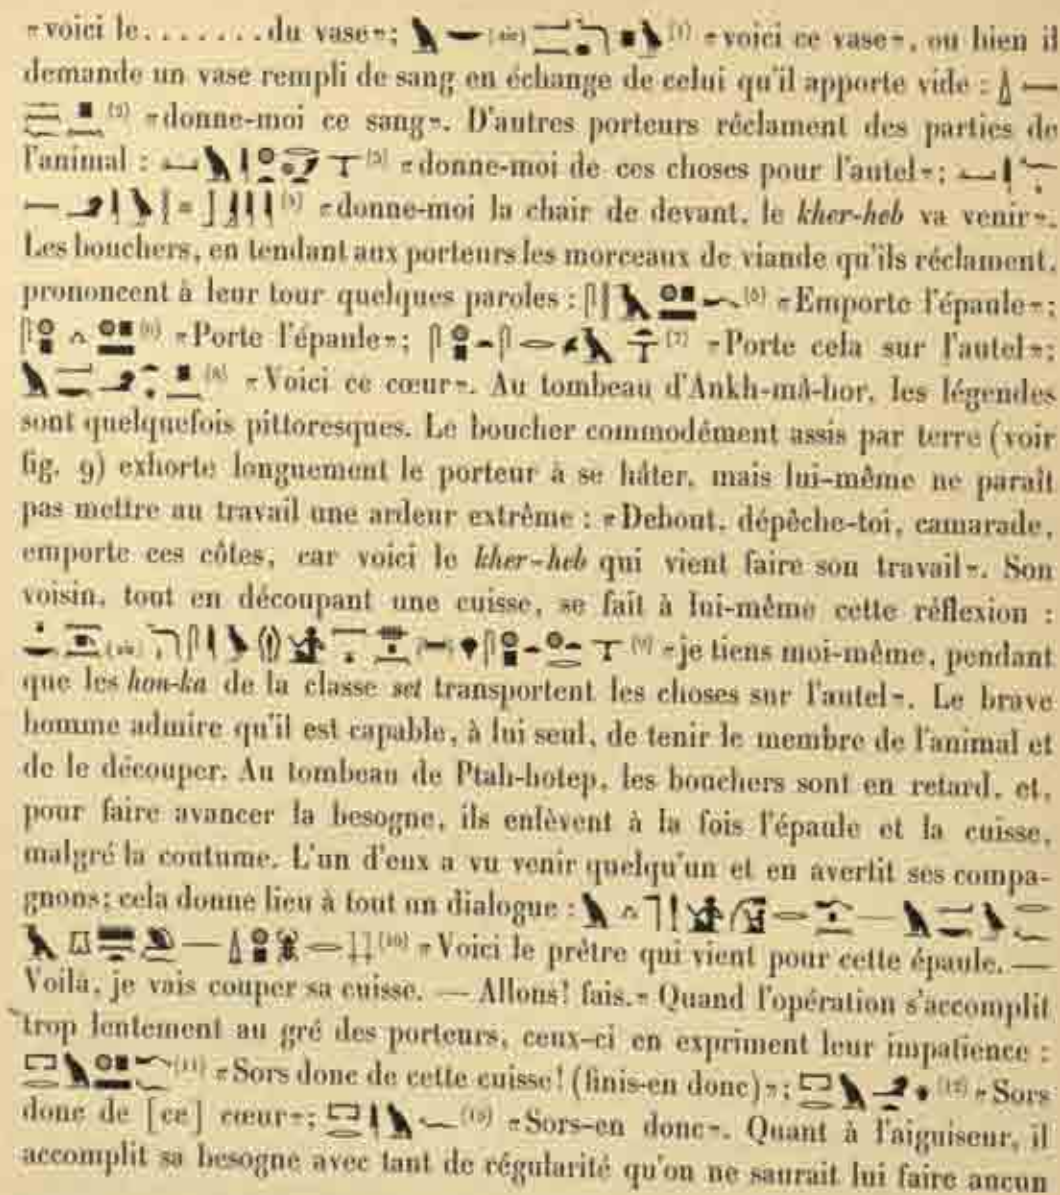 «voici le.......du vase»; (sic) (1) «voici ce vase», ou bien il
demande un vase rempli de sang en échange de celui qu'il apporte vide :
(2) «donne-moi ce sang». D'autres porteurs réclament des parties de
l'animal : (3) «donne-moi de ces choses pour l'autel»;
(4) «donne-moi la chair de devant, le kher-heb va venir».
Les bouchers, en tendant aux porteurs les morceaux de viande qu'ils réclament,
prononcent à leur tour quelques paroles : (5) «Emporte l'épaule»;
(6) «Porte l'épaule»; (7) «Porte cela sur l'autel»;
(8) «Voici ce cœur». Au tombeau d'Ankh-mâ-hor, les légendes
sont quelquefois pittoresques. Le boucher commodément assis par terre (voir
fig. 9) exhorte longuement le porteur à se hâter, mais lui-même ne paraît
pas mettre au travail une ardeur extrême : «Debout, dépêche-toi, camarade,
emporte ces côtes, car voici le kher-heb qui vient faire son travail». Son
voisin, tout en découpant une cuisse, se fait à lui-même cette réflexion :
(sic) (9) «je tiens moi-même, pendant
que les hon-ka de la classe set transportent les choses sur l'autel». Le brave
homme admire qu'il est capable, à lui seul, de tenir le membre de l'animal et
de le découper. Au tombeau de Ptah-hotep, les bouchers sont en retard, et,
pour faire avancer la besogne, ils enlèvent à la fois l'épaule et la cuisse,
malgré la coutume. L'un d'eux a vu venir quelqu'un et en avertit ses compa-
gnons; cela donne lieu à tout un dialogue : —
— (10) «Voici le prêtre qui vient pour cette épaule. —
Voilà, je vais couper sa cuisse. — Allons! fais.» Quand l'opération s'accomplit
trop lentement au gré des porteurs, ceux-ci en expriment leur impatience :
(11) «Sors donc de cette cuisse! (finis-en donc)»; (12) «Sors
donc de [ce] cœur»; (13) «Sors-en donc». Quant à l'aiguiseur, il
accomplit sa besogne avec tant de régularité qu'on ne saurait lui faire aucun